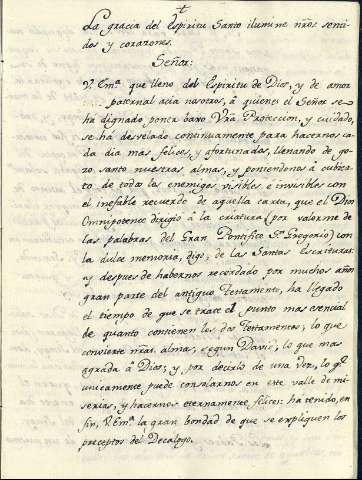 La gracia del Espiritu Santo ilumine nr̃os senti-
dos y corazones.
Señor:
V. Emª. que lleno del Espiritu de Dios, y de amor
paternal acia nosotros, â quienes el Señor se
ha dignado poner baxo Vr̃a Proteccion, y cuidado,
se ha desvelado continuamente para hacernos ca-
da dia mas felices, y afortunados, llenando de go-
zo santo nuestras almas, y poniendonos â cubier-
to de todos los enemigos visibles e invisibles con
el inefable recuerdo de aquella carta, que el Dios
Omnipotente dirigiô â la criatura (por valerme de
las palabras del Gran Pontifice Sn. Gregorio) con
la dulce memoria, digo, de las Santas Escrituras:
y despues de habernos recordado por muchos años
gran parte del antiguo Testamento, ha llegado
el tiempo de que se trate el punto mas esencial
de quanto contienen los dos Testamentos; lo que
convierte nr̃as almas, segun David; lo que mas
agrada â Dios; y, por decirlo de una vez, lo q̃
unicamente puede consolarnos en este valle de mi-
serias, y hacernos eternamente felices: ha tenido, en
fin, V. Emª. la gran bondad de que se expliquen los
preceptos del Decalogo.